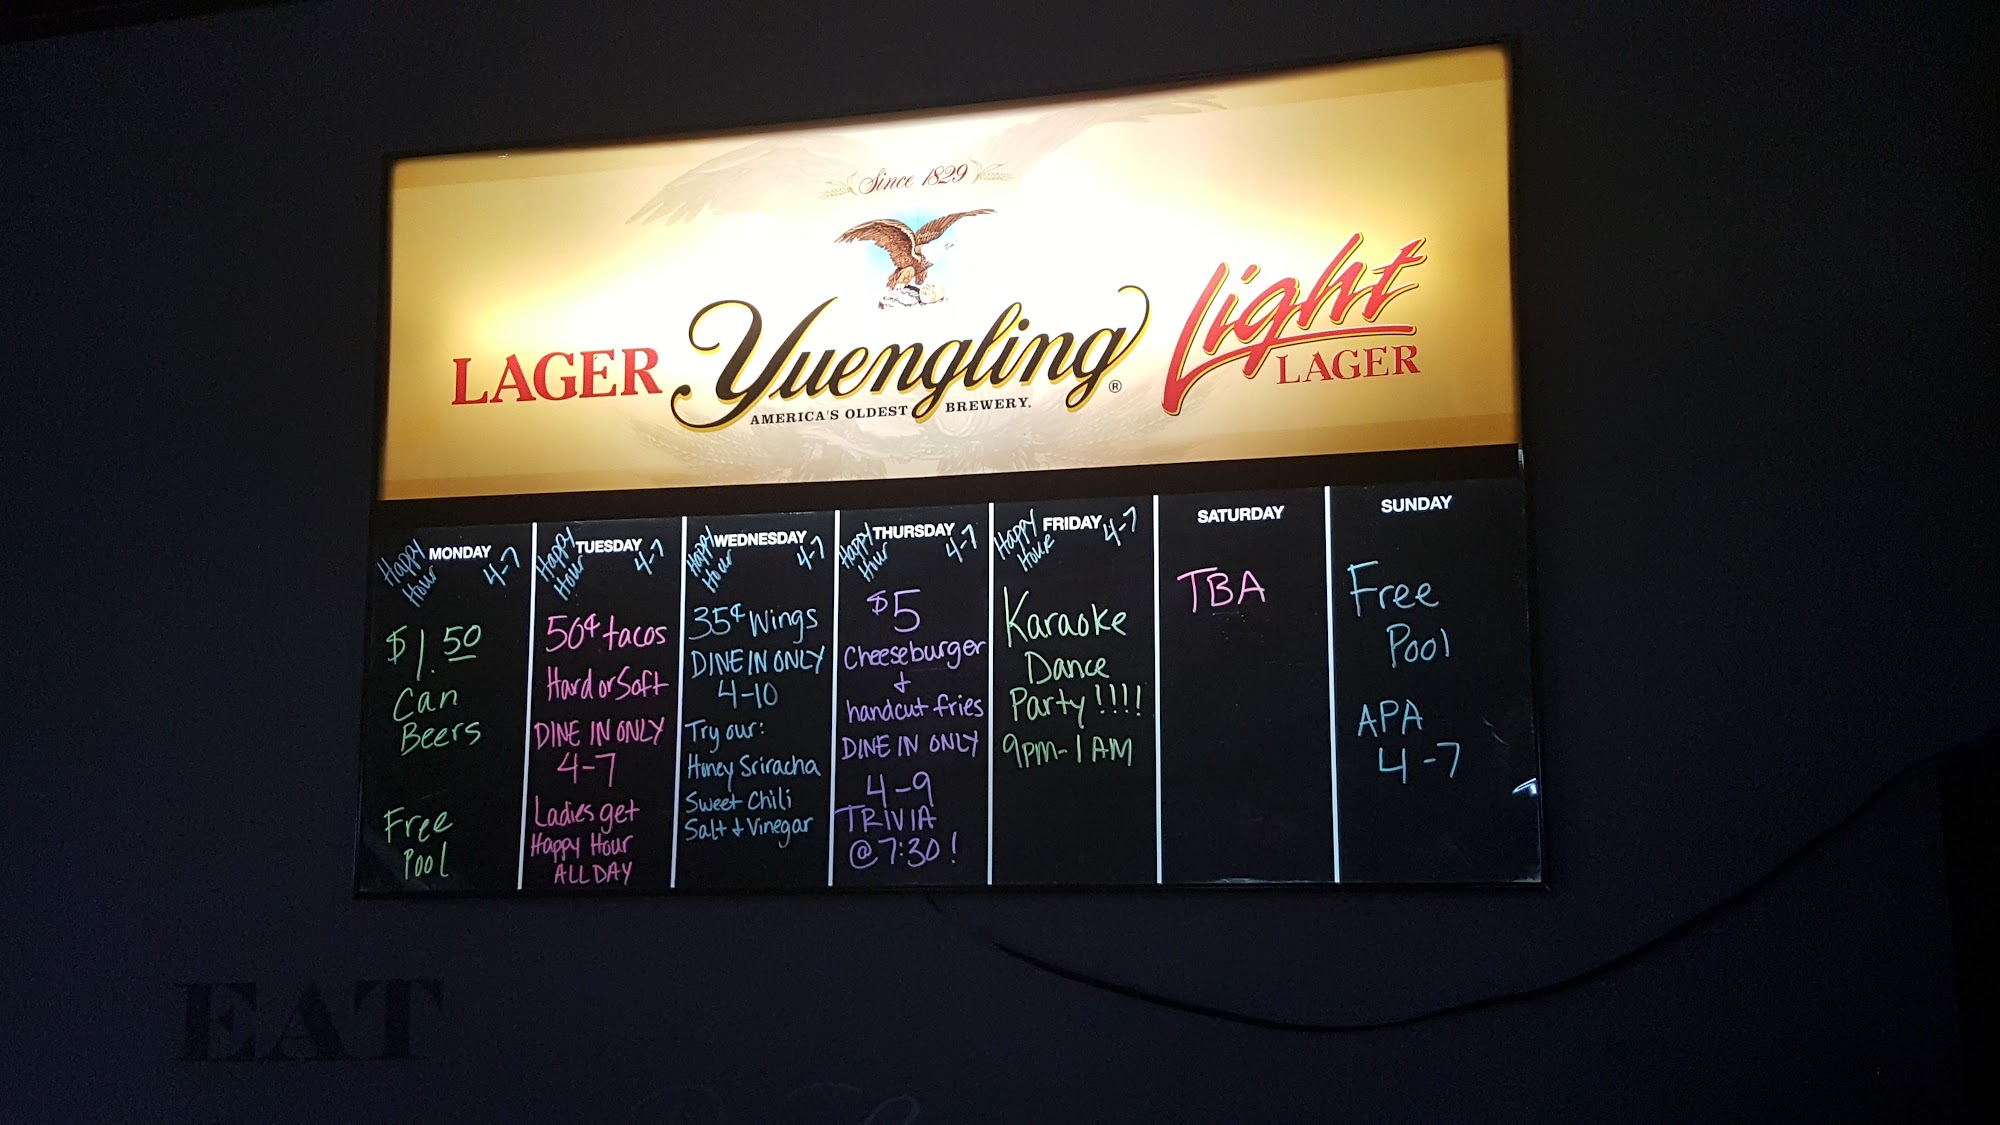 Since 1829
LAGER Yuengling® Light
LAGER
AMERICA'S OLDEST BREWERY.
MONDAY
Happy
Hour
4-7
$1.50
Can
Beers
Free
Pool
TUESDAY
Happy
Hour
4-7
50¢ tacos
Hard or Soft
DINE IN ONLY
4-7
Ladies get
Happy Hour
ALL DAY
WEDNESDAY
Happy
Hour
4-7
35¢ Wings
DINE IN ONLY
4-10
Try our:
Honey Sriracha
Sweet Chili
Salt & Vinegar
THURSDAY
Happy
Hour
4-7
$5
Cheeseburger
&
handcut fries
DINE IN ONLY
4-9
TRIVIA
@ 7:30!
FRIDAY
Happy
Hour
4-7
Karaoke
Dance
Party!!!!
9PM-1AM
SATURDAY
TBA
SUNDAY
Free
Pool
APA
4-7
EAT